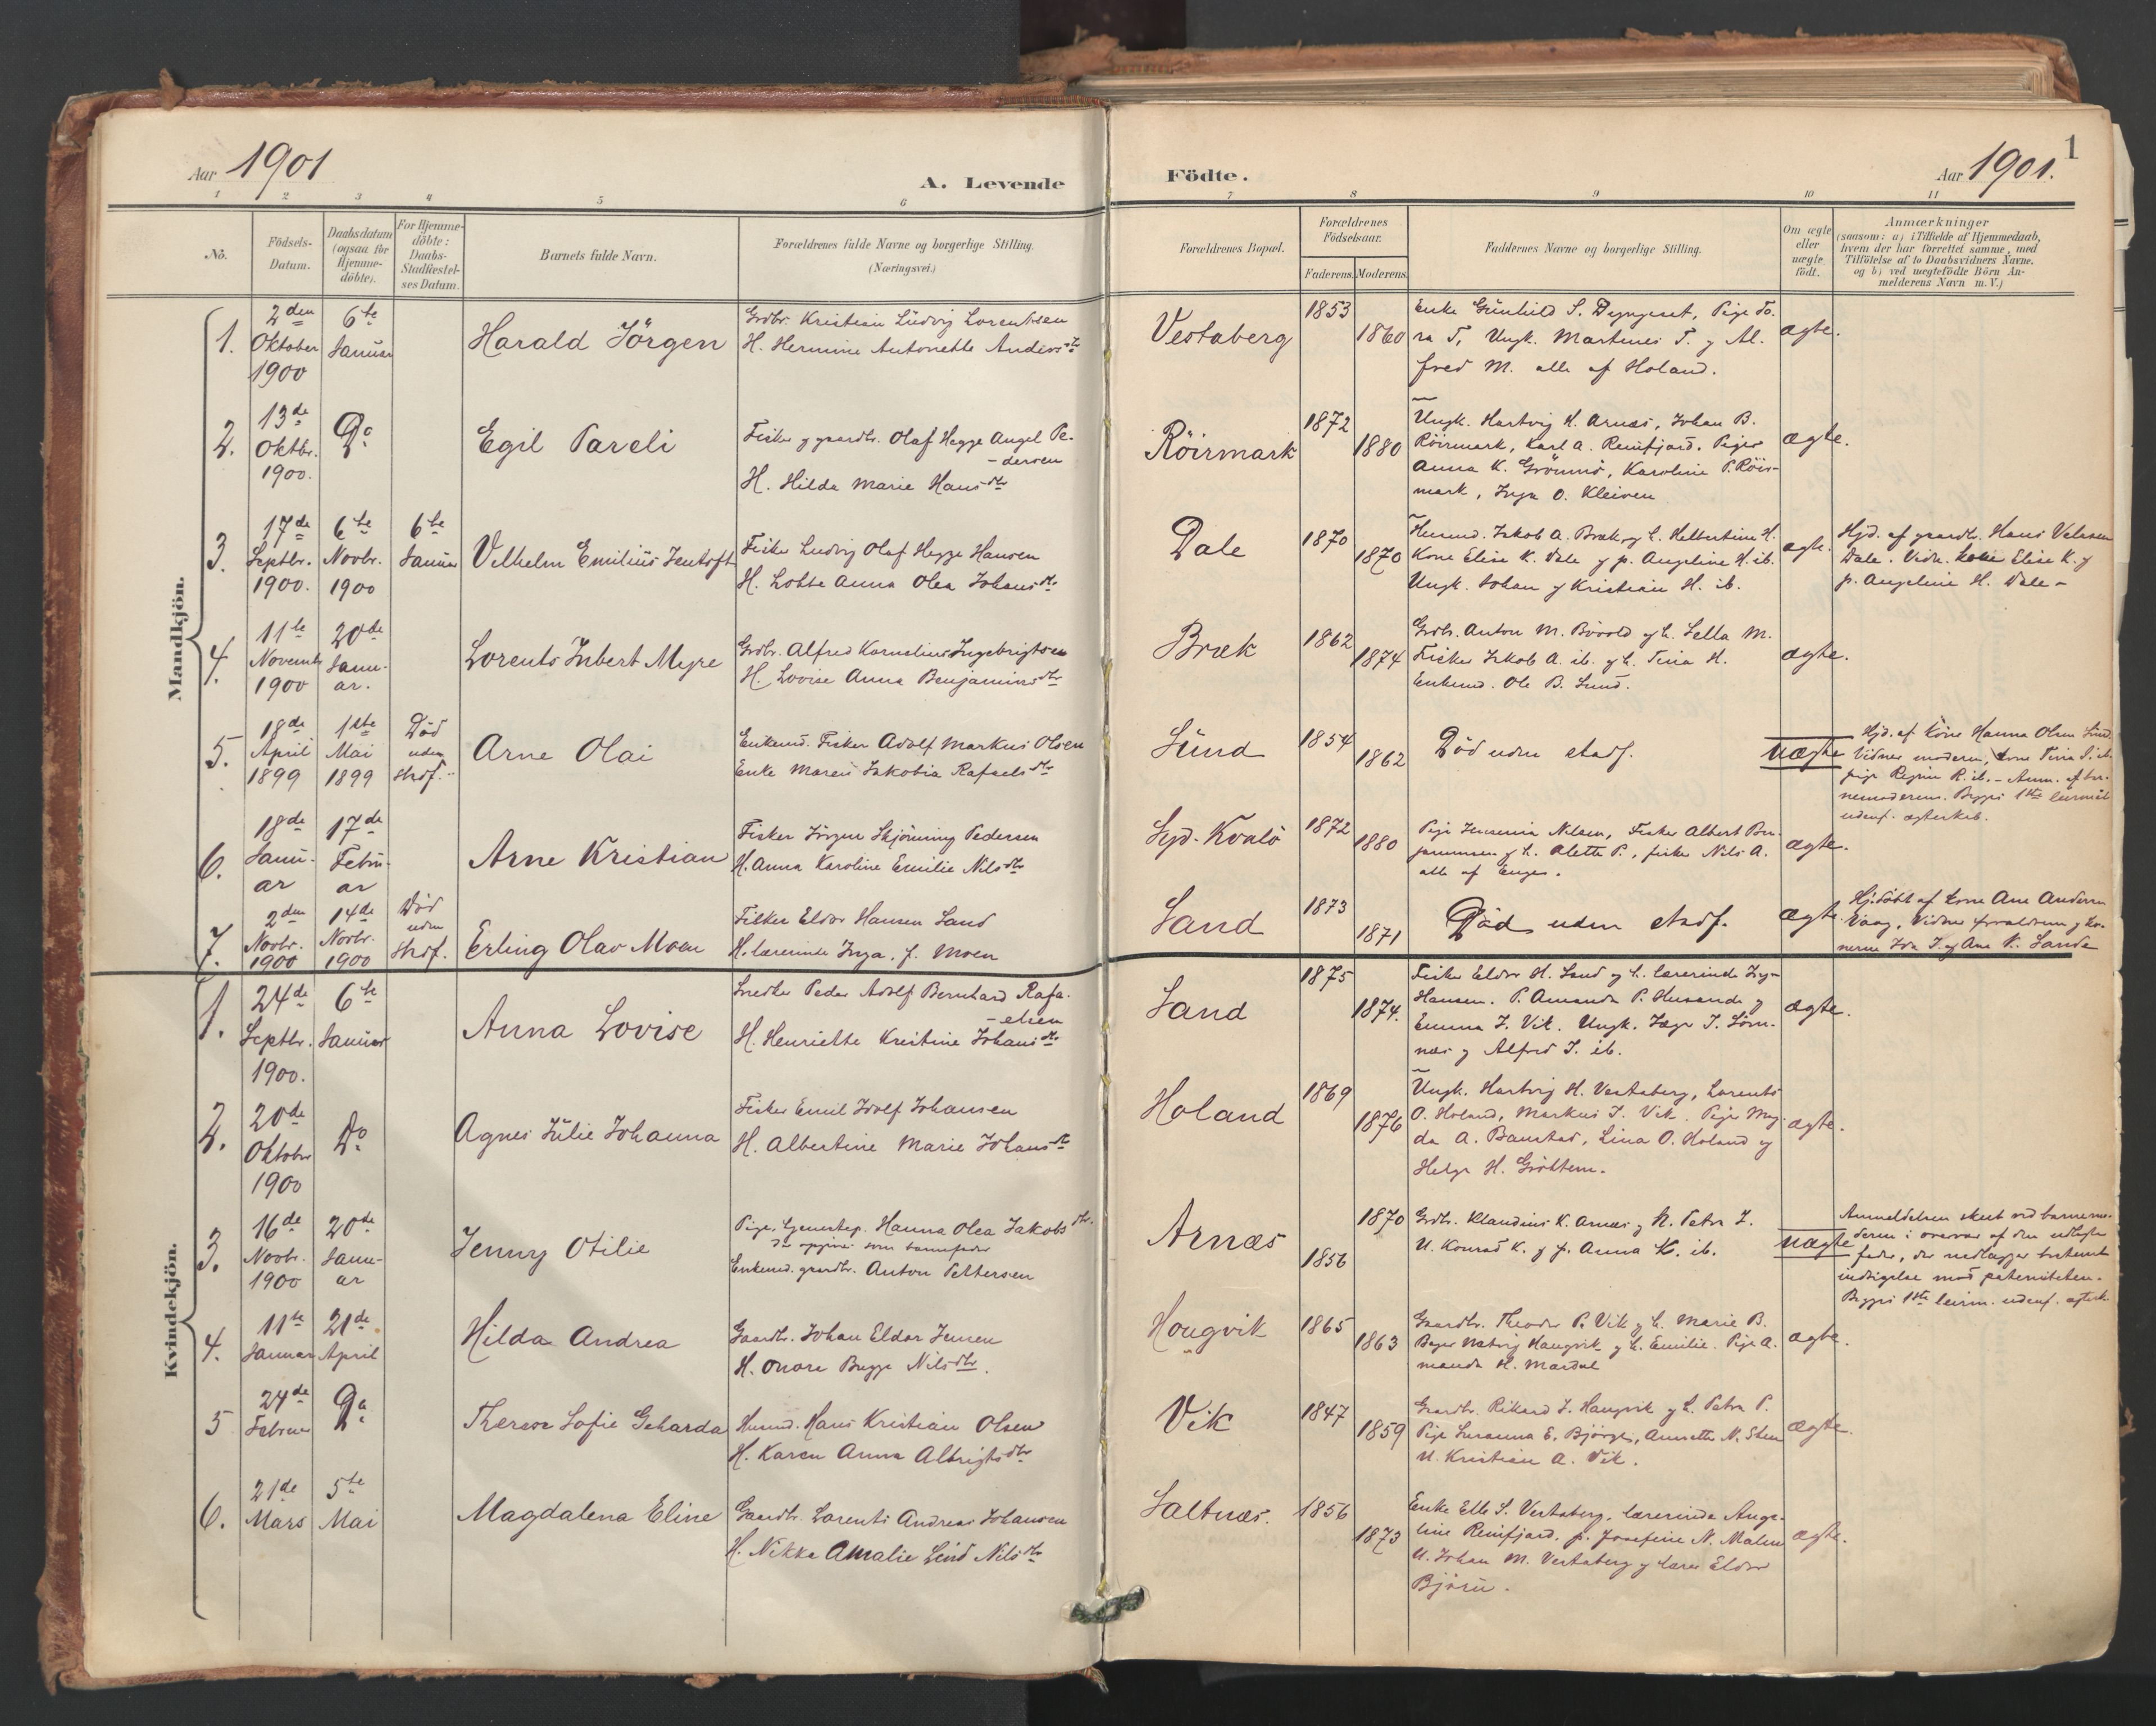 Aar 1901
A. Levende
Födte.
Aar 1901.
1
1 2 3 4 5 6 7 8 9 10 11
No.
Födsels-
Datum.
Daabsdatum
(ogsaa for
Hjemme-
döbte).
For Hjemme-
döbte:
Daabs-
Stadfæstel-
ses Datum.
Barnets fulde Navn.
Forældrenes fulde Navne og borgerlige Stilling.
(Næringsvei.)
Forældrenes Bopæl.
Forældrenes
Födselsaar.
Faderens. Moderens.
Faddernes Navne og borgerlige Stilling.
Om ægte
eller
uægte
födt.
Anmærkninger
(saasom: a) i Tilfælde af Hjemmedaab,
hvem der har forrettet samme, med
Tilföielse af to Daabsvidners Navne.
og b) ved uægtefödte Börn An-
melderens Navn m. V.)
Mandkjön.
1.
2den
Oktober
1900
6te
Januar
Harald Jörgen
Grdbr. Kristian Ludvig Lorentsen
H. Hermine Antonette Andersdtr
Vestaberg
1853
1860
Enke Gunhild S. Dypgeset, Pige To-
ra T, Ungk. Martines T. og Al-
fred M. alle af Holand.
ægte.
2.
13de
Oktbr.
1900.
Do
Egil Pareli
Fisker og gaardbr. Olaf Hegge Angel Pe-
dersen
H. Hilda Marie Hansdtr
Röirmark
1872
1880
Ungk. Hartvig H. Arnæs, Johan B.
Röirmark, Karl A. Reinfjord. Piger
Anna K. Grönmo, Karoline P. Röir-
mark, Inga O. Kleiven
ægte.
3.
17de
Septbr.
1900.
6te
Novbr.
1900
6te
Januar
Vilhelm Emilius Jentoft
Fisker Ludvig Olaf Hegge Hansen
H. Lotte Anna Olea Johansdtr
Dale
1870
1870
Husmd. Jakob A. Bræk og h. Helbertine H.
Kone Elise K. Dale og p. Angeline H. ib.
Ungk. Johan og Kristian H. ib.
ægte.
Hjd. af gaardbr. Hans
Dale. Vidn. Kone Elise K. og
p. Angeline H. Dale -
4.
11te
Novemb
1900
20de
Janu-
ar.
Lorents Inbert Meyre
Grdbr. Alfred Kornelius Ingebrigtsen
H. Lovise Anna Benjaminsdtr
Bræk
1862
1874
Grdb. Anton M. Bövold og h. Sella M.
Fisker Jakob A. ib. og h. Tina H.
Enkemd. Ole B. Sund.
ægte.
5.
18de
April
1899
1ste
Mai
1899
Död
uden
stadf.
Arne Olai
Enkemd. Fisker Adolf Markus Olsen
Enke Maren Jakobia Rafaelsdtr
Sund
1854
1862
Död uden stadf.
uægte
Hjd. af Kone Hanna Olsen Sund.
Vidner moderen, Kone Tina S. ib.
pige Regine R. ib. - Anm. af bar-
nemoderen. Begges 1ste leiermål
udenf. ægteskab.
6.
18de
Janu-
ar
17de
Febru-
ar
Arne Kristian
Fisker Jörgen Skjönning Pedersen
H. Anna Karoline Emilie Nilsdtr
Kvalö
1872
1880
Pige Jensenia Nilsen, Fisker Albert Ben-
jaminsen og h. Alette P., fisker Nils A.
alle af
ægte.
7.
2den
Novbr.
1900
14de
Novbr.
1900
Död
uden
stadf.
Erling Olav Moen
Fisker Eldor Hansen Sand
H. Lærerinde Inga. f. Moen
Sand
1873
1871
Död uden stadf.
ægte.
Hj.döbt af Kone Ane Andersen
Vaag, Vidner forældrene og ko-
nerne Ida I. og Ane K. Sande
Kvindekjön.
1.
24de
Septbr.
1900.
6te
Januar
Anna Lovise
Snedker Peder Adolf Bernhard Rafa-
elsen
H. Henriette Kristine Johansdtr
Sand
1875
1874.
Fisker Eldor H. Sand og h. lærerinde Ing-
Hansen. P. Amanda P. Husande og
Emma J. Vik. Ungk. Jæger I. Sörn-
næs og Alfred I. ib.
ægte.
2.
20de
Oktober
1900
Do
Agnes Julie Johanna
Fisker Emil Edolf Johansen
H. Albertine Marie Johansdtr
Holand
1869
1876
Ungk. Hartvig H. Vestaberg, Lorents
O. Holand, Markus J. Vik. Piger Mag-
da A. Baustad, Lina O. Holand og
Helga H. Gröttem.
ægte.
3.
16de
Novbr.
1900
20de
Janu-
ar
Jenny Otilie
Pige, tjenestep. Hanna Olea Jakobsdtr.
Der opgives som barnefader
Enkemd. gaardbr. Anton Pettersen
Arnæs
1870
1856
Grdbr. Klaudius K. Arnæs og h. Petra J.
U. Konrad K. og p. Anna K. ib.
uægte
Anmeldelsen skeet ved barnemo-
deren i overvær af den udlagte
fader, der nedlægger bestemt
indsigelse mod paterniteten.
Begges 1ste leierm. udenf. ægtesk.
4.
11te
Januar
21de
April
Hilda Andrea
Gaardbr. Johan Eldor Jensen
H. Onore Bugge Nilsdtr.
Hougvik
1865
1863
Gaardbr. Theodor P. Vik og h. Marie B.
Bager Natvig Haugvik og h. Emilie. Pige A-
manda H. Mardal
ægte.
5
24de
Februar
Do
Therese Sofie Geharda
Husmd. Hans Kristian Olsen
H. Karen Anna Albrigtsdtr
Vik
1847
1859
Gaardbr. Rikard J. Haugvik og h. Petra P.
Pige Susanna E. Björge, Annette N. Sten
U. Kristian A. Vik.
ægte.
6.
21de
Mars
5te
Mai
Magdalena Eline
Gaardbr. Lorents Andreas Johansen
H. Nikka Amalie Lind Nilsdtr
Saltnæs.
1856
1873
Enke Elle S. Vestaberg, lærerinde Ange-
line Reinfjord, p. Josefine N. Malm
U. Johan M. Vestaberg og lærer Eldor
Björu.
ægte.